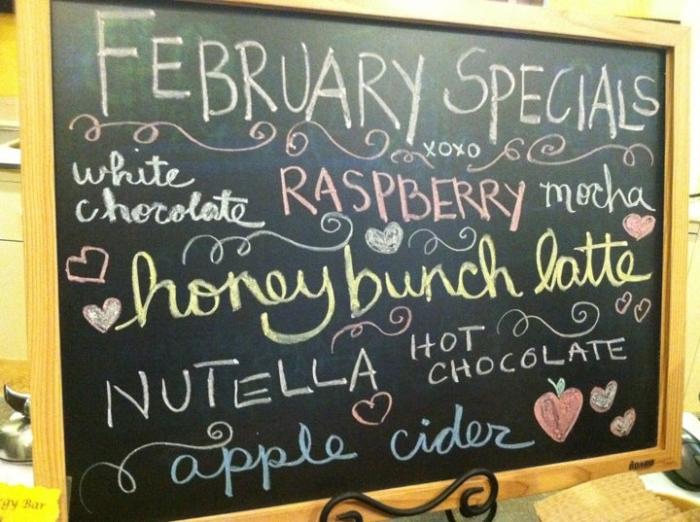 FEBRUARY SPECIALS
xoxo
white chocolate RASPBERRY mocha
honey bunch latte
NUTELLA HOT CHOCOLATE
apple cider
gy Bar